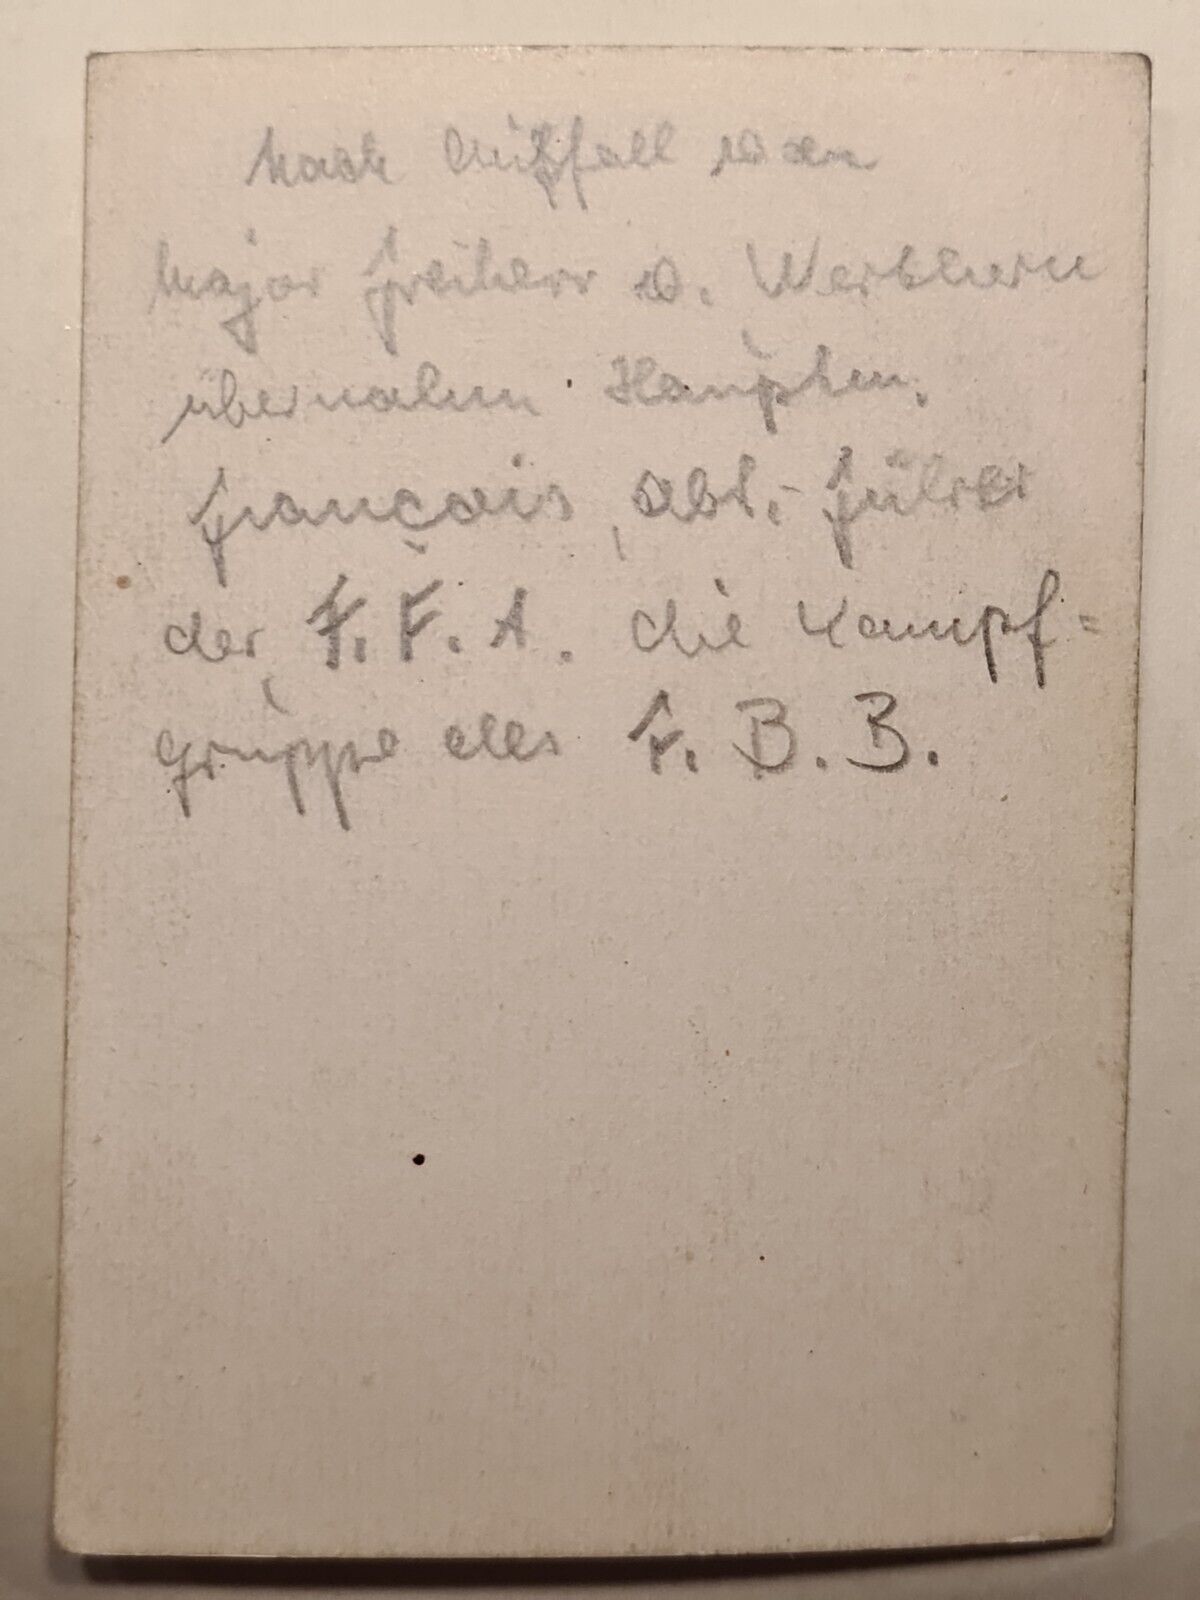 Nach Ausfall von
Major Freiherr v. Werthern
übernahm Hauptm.
Français, Abt.-Führer
der F. F. A. die Kampf=
gruppe des F. B. B.